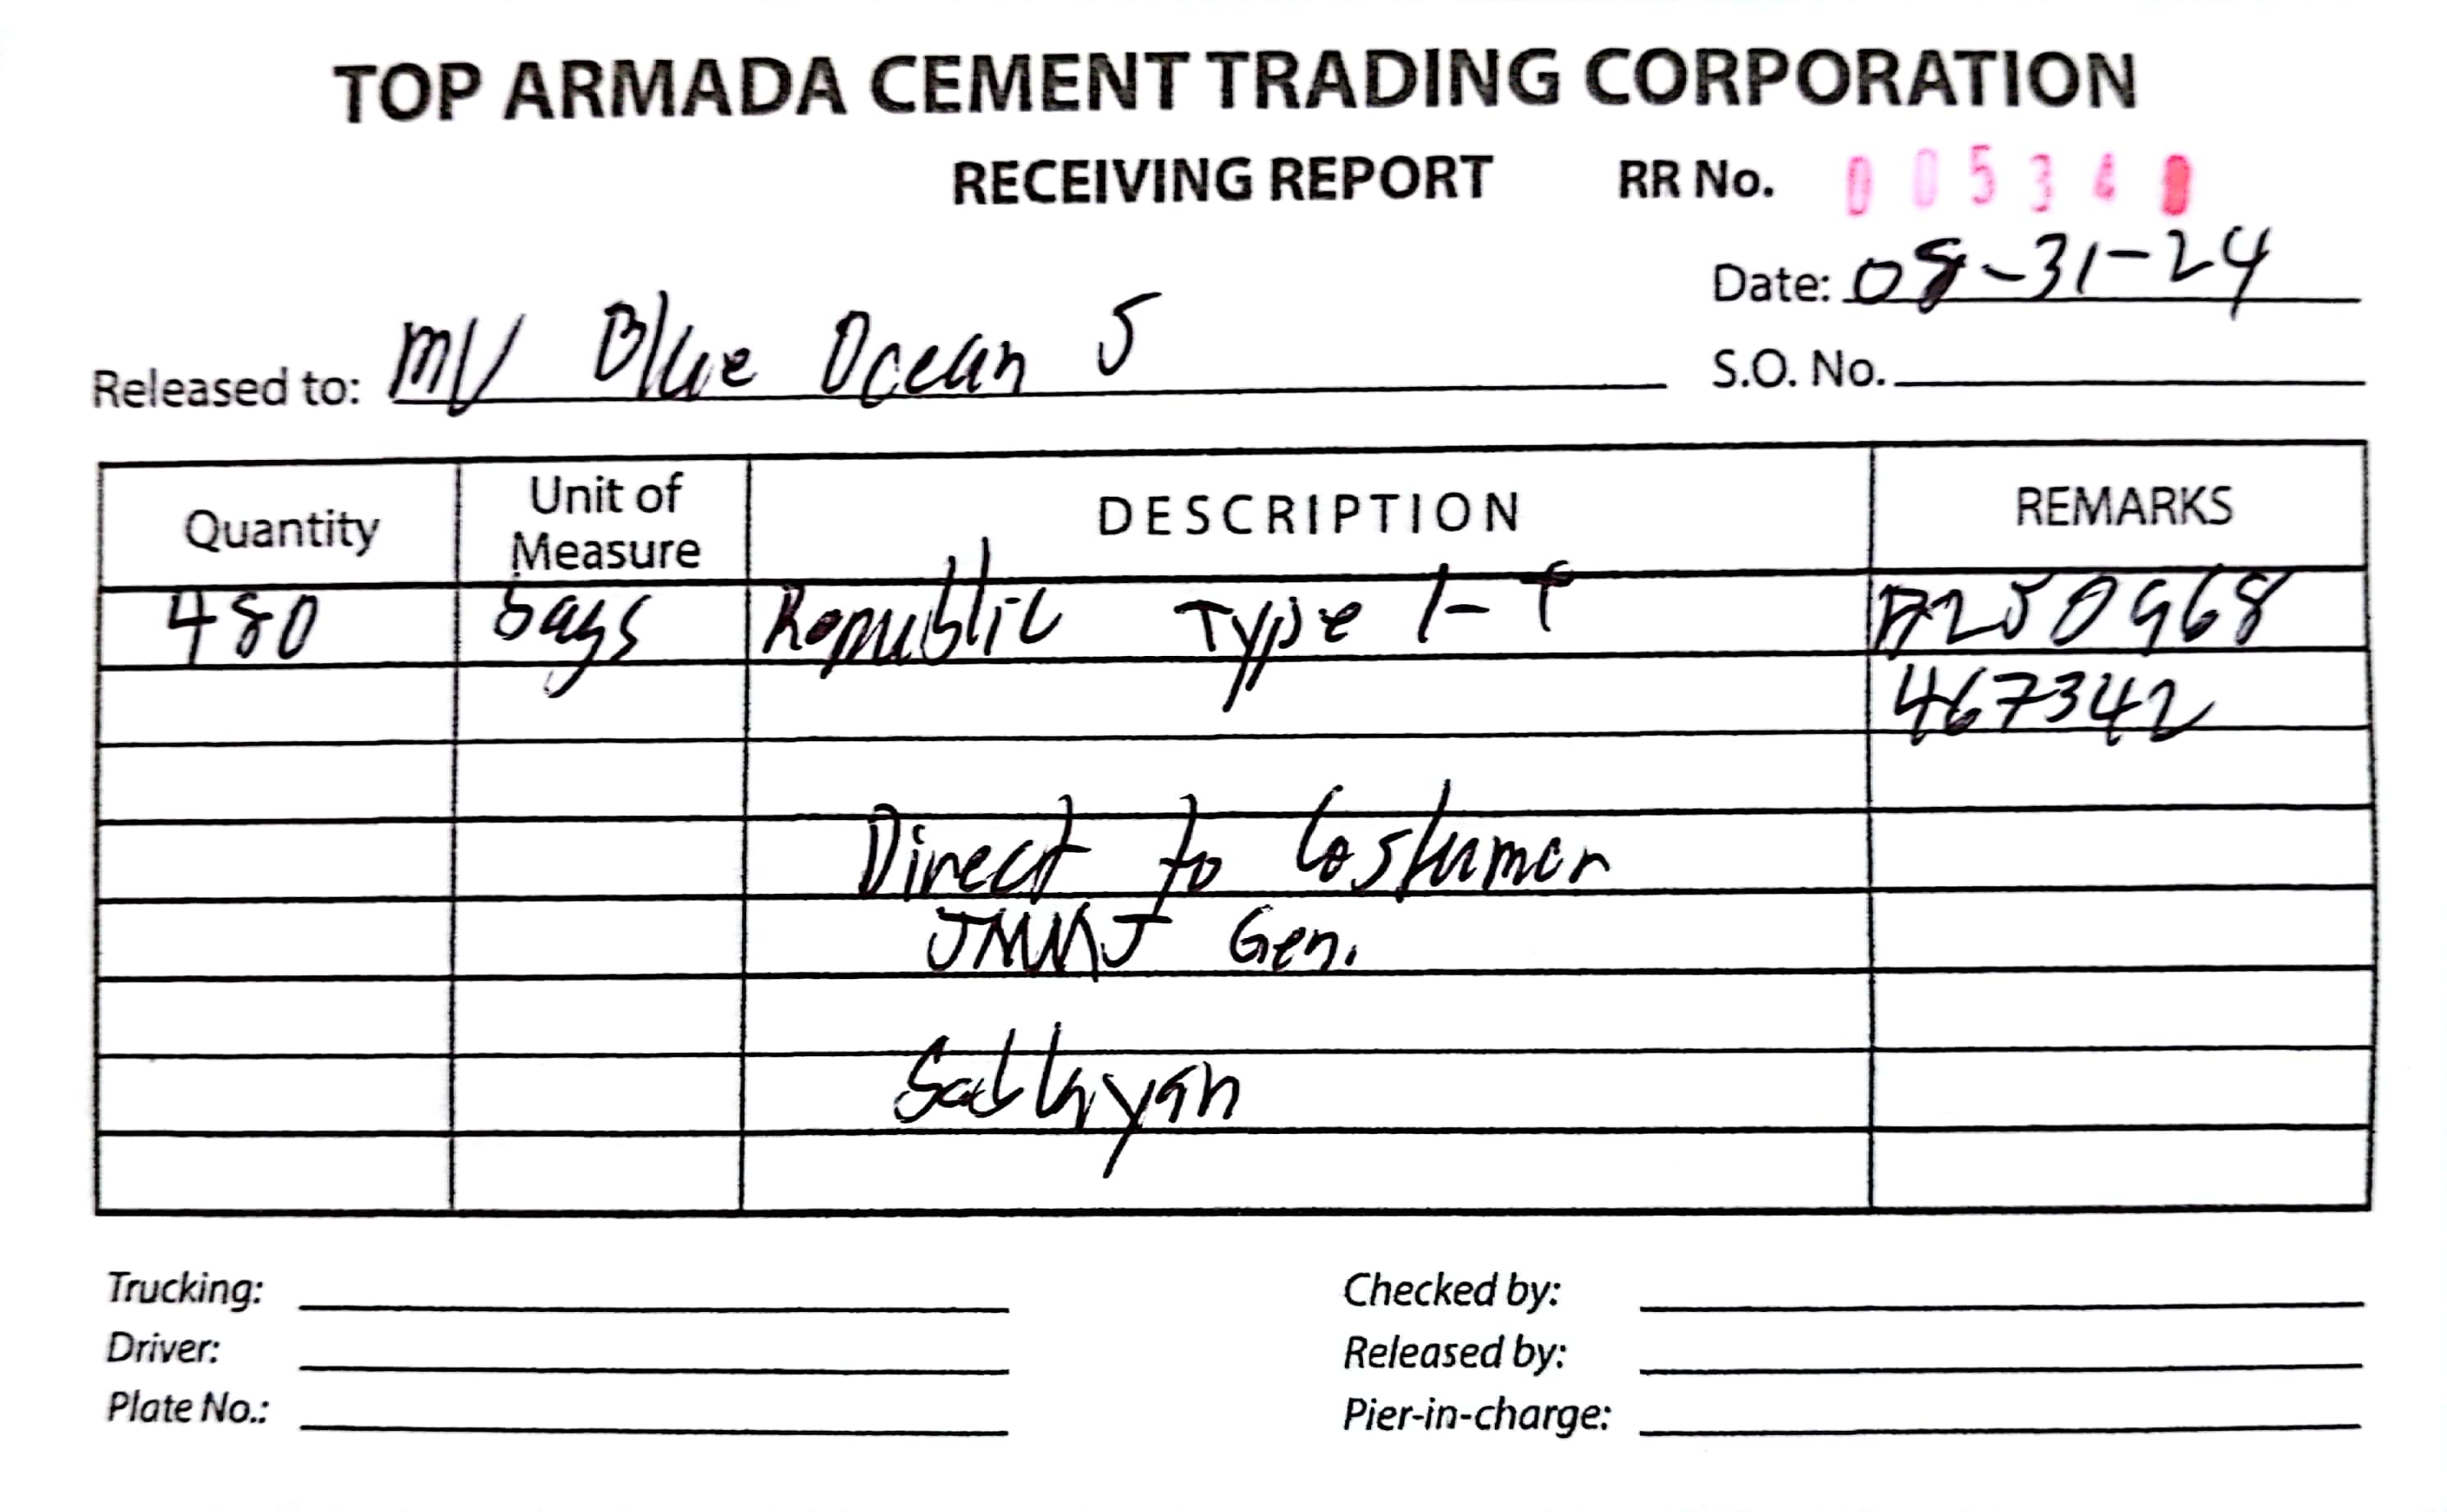 TOP ARMADA CEMENT TRADING CORPORATION
RECEIVING REPORT RR No.
Date: 08-31-24
Released to: MV Blue Ocean 5 S.O. No.
Quantity Unit of Measure DESCRIPTION REMARKS
480 bags Republic Type 1-T
467342
Direct to Costumer
JMMJ Gen.
Trucking: Checked by:
Driver: Released by:
Plate No.: Pier-in-charge: